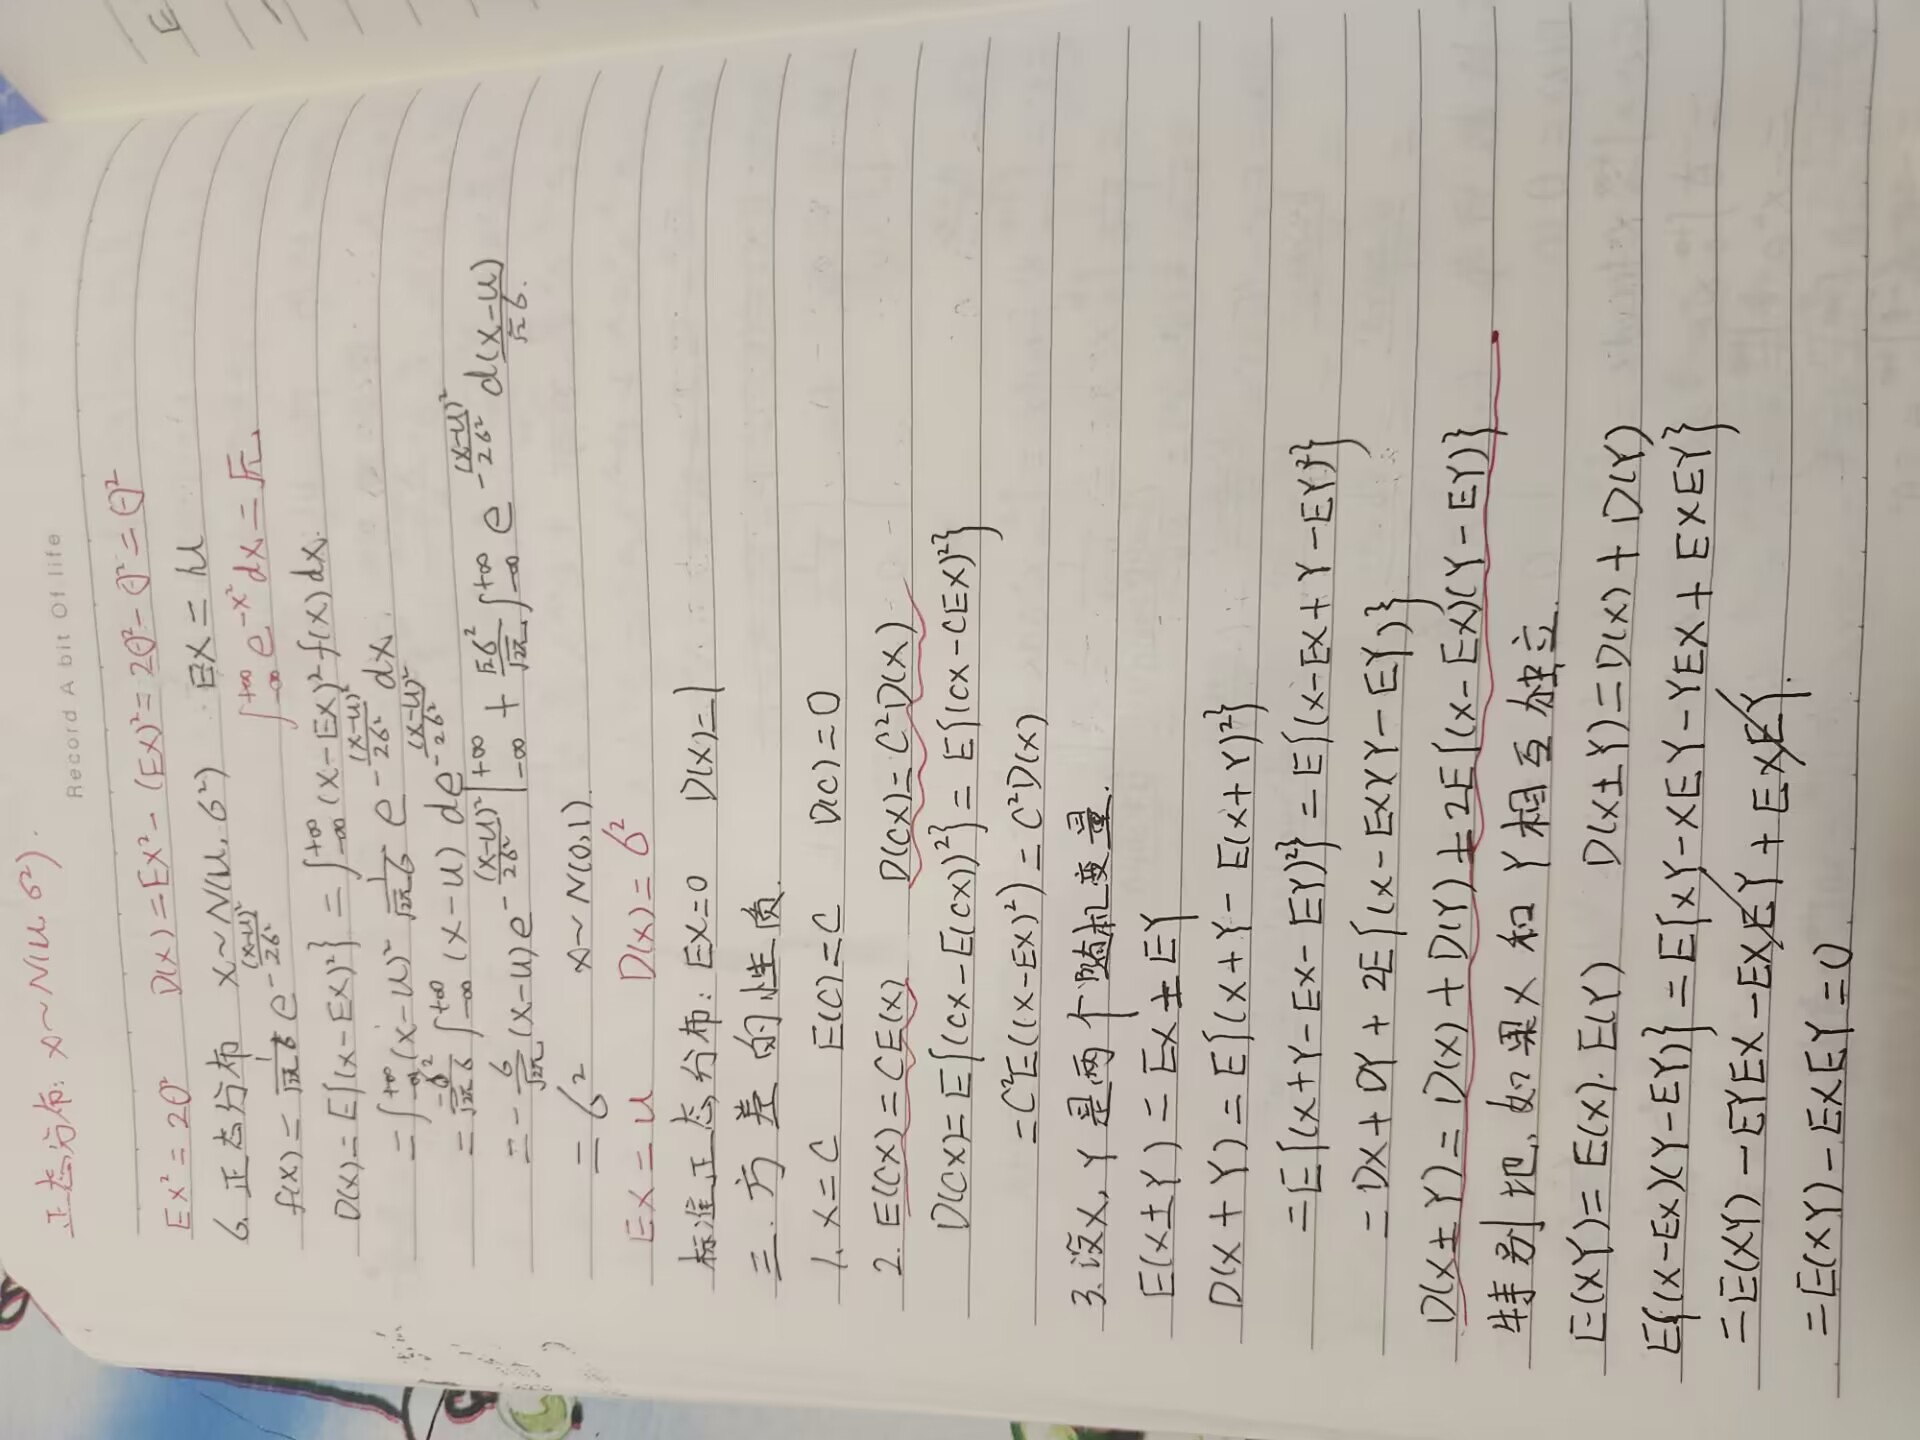 Record A bit Of life
正态分布: X~N(u, б²).
EX²=2θ² D(X)=EX²-(EX)²=2θ²-θ²=θ²
6.正态分布 X~N(u, б²) EX=u
f(x)=\frac{1}{\sqrt{2π}б}e^{-\frac{(x-u)²}{2б²}} ∫_{-∞}^{+∞}e^{-x²}dx=√π.
D(X)=E{(X-EX)²}=∫_{-∞}^{+∞}(x-EX)²f(x)dx.
=∫_{-∞}^{+∞}(x-u)²\frac{1}{\sqrt{2π}б}e^{-\frac{(x-u)²}{2б²}}dx.
=\frac{-б²}{\sqrt{2π}б}∫_{-∞}^{+∞}(x-u)de^{-\frac{(x-u)²}{2б²}}
=-\frac{б}{\sqrt{2π}}(x-u)e^{-\frac{(x-u)²}{2б²}}|_{-∞}^{+∞}+\frac{\sqrt{2}б²}{\sqrt{2π}}∫_{-∞}^{+∞}e^{-\frac{(x-u)²}{2б²}}d\frac{(x-u)}{\sqrt{2}б}.
=б² X~N(0,1)
EX=u D(X)=б²
标准正态分布: EX=0 D(X)=1
三.方差的性质.
1. X=C E(C)=C D(C)=0
2. E(CX)=CE(X) D(CX)=C²D(X)
D(CX)=E{(CX-E(CX))²}=E{(CX-CEX)²}
=C²E((X-EX)²)=C²D(X)
3.设X, Y是两个随机变量.
E(X±Y)=EX±EY
D(X+Y)=E{(X+Y-E(X+Y)²}
=E{(X+Y-EX-EY)²}=E{(X-EX+Y-EY)²}
=DX+DY+2E{(X-EX)(Y-EY)}
D(X±Y)=D(X)+D(Y)±2E{(X-EX)(Y-EY)}
特别地,如果X和Y相互独立.
E(XY)=E(X).E(Y) D(X±Y)=D(X)+D(Y)
E{(X-EX)(Y-EY)}=E{XY-XEY-YEX+EXEY}
=E(XY)-EYEX-EXEY+EXEY.
=E(XY)-EXEY=0